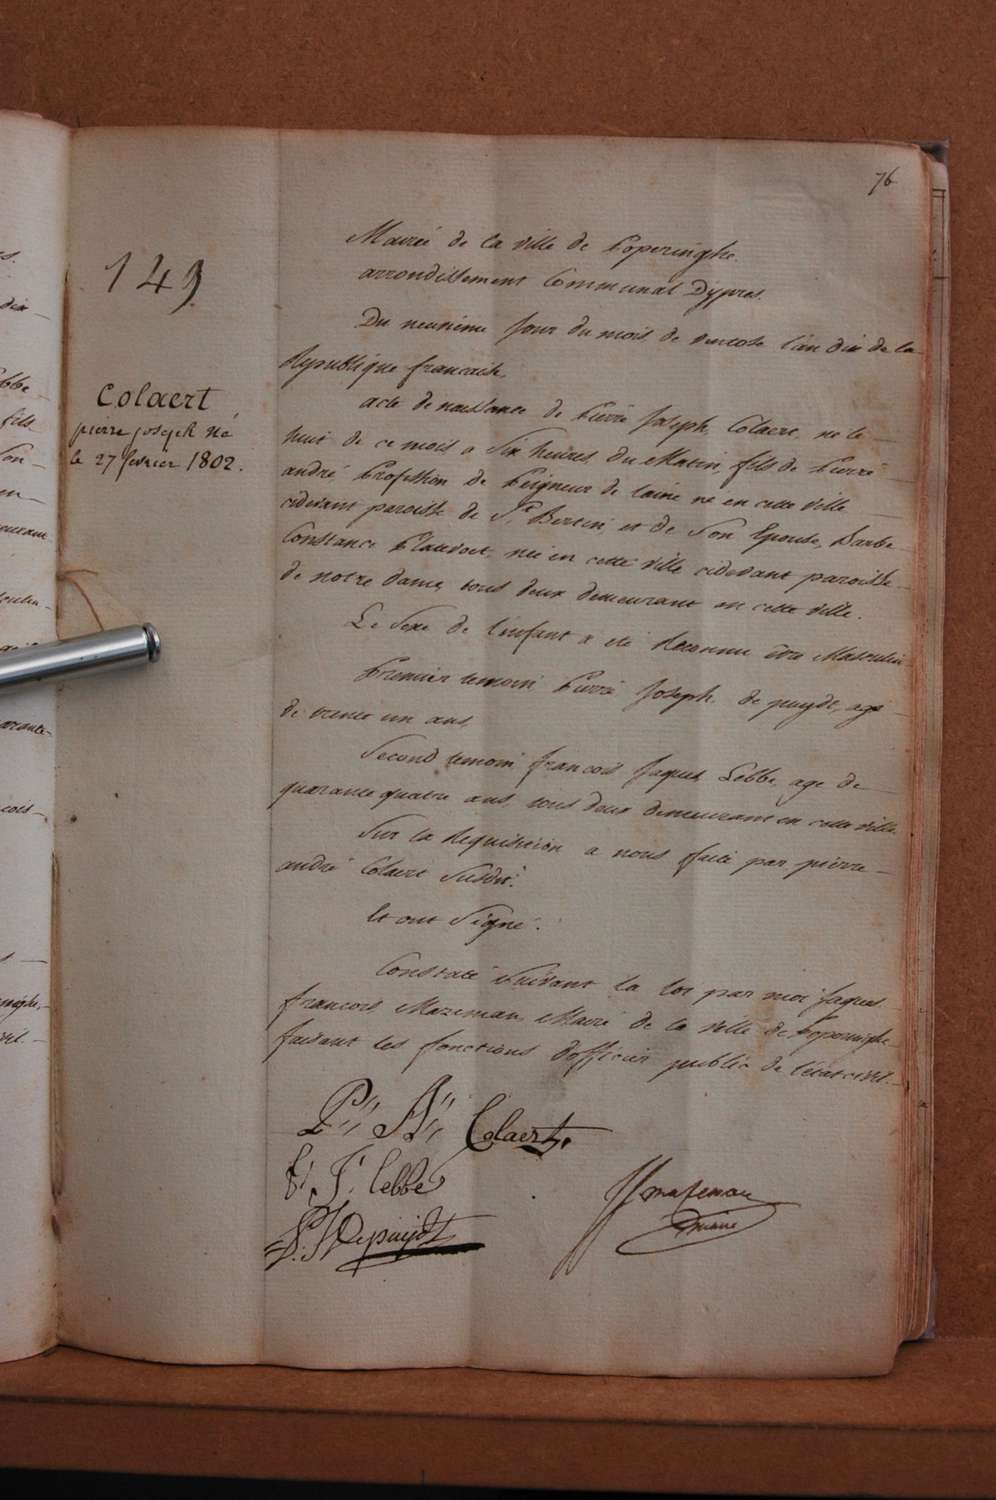 76
149
Colaert
pierre joseph né
le 27 fevrier 1802.
Mairie de la ville de Poperinghe
arrondissement Communal Dypres.
Du neuvieme jour du mois de ventose l'an dix de la
Republique francaise,
acte de naissance de Pierre Joseph, Colaert, né le
huit de ce mois a Six heures du Matin, fils de Pierre
andré Profession de Peigneur de laine né en cette ville
cidevant paroisse de St Bertin, et de Son Epouse, Barbe
Constance née en cette ville cidevant paroisse
de notre dame, tous deux demeurant en cette ville.
Le Sexe de l'enfant a eté Reconnu être Masculin
Premier temoin Pierre Joseph, de puydt, age
de trente un ans,
Second temoin francois Jaques Lebbe, age de
quarante quatre ans, tous deux demeurant en cette ville.
Sur la Requisition a nous faite par pierre
andré Colaert Susdit.
Et ont Signé.
Constaté Suivant la loi par moi Jaques
francois Mazeman Maire de la ville de Poperinghe
faisant les fonctions d'officier public de l'état civil.
P A Colaert
f, J. lebbe
P. J Depuijdt
JJ mazeman
maire